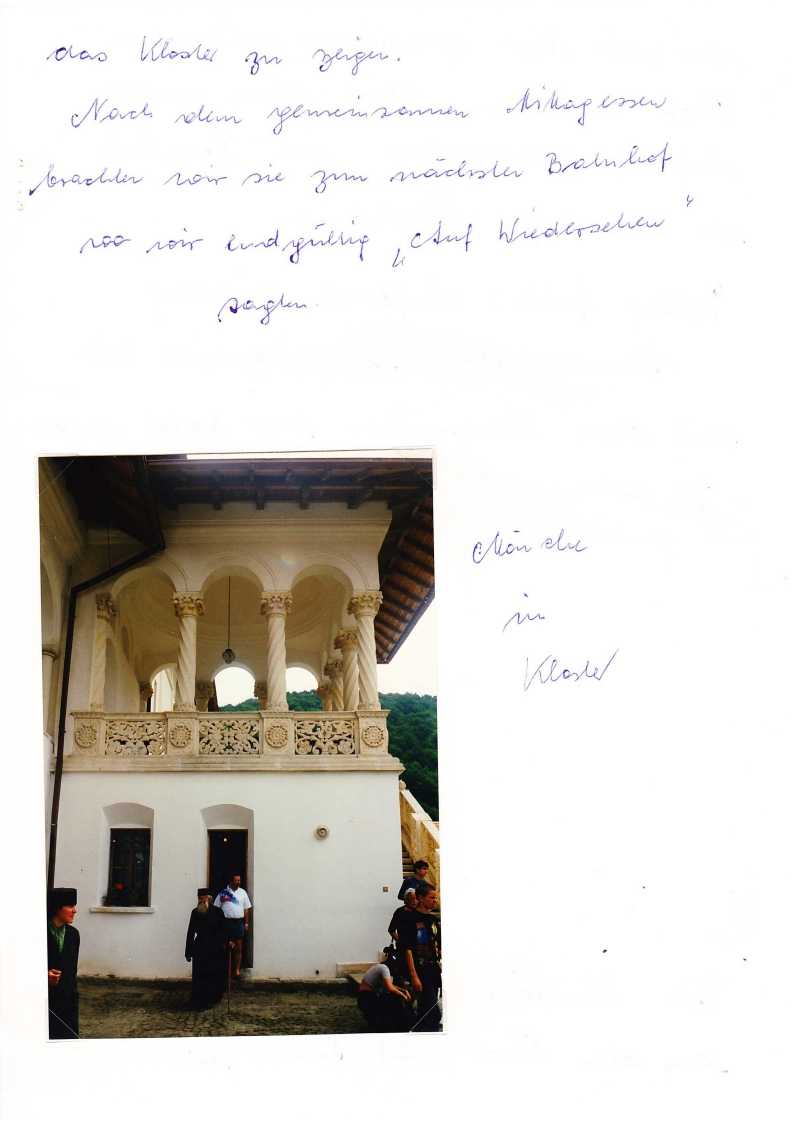 das Kloster zu zeigen.
Nach dem gemeinsamen Mittagessen
brachten wir sie zum nächsten Bahnhof
wo wir endgültig „Auf Wiedersehen"
sagten.
Mönche
im
Kloster